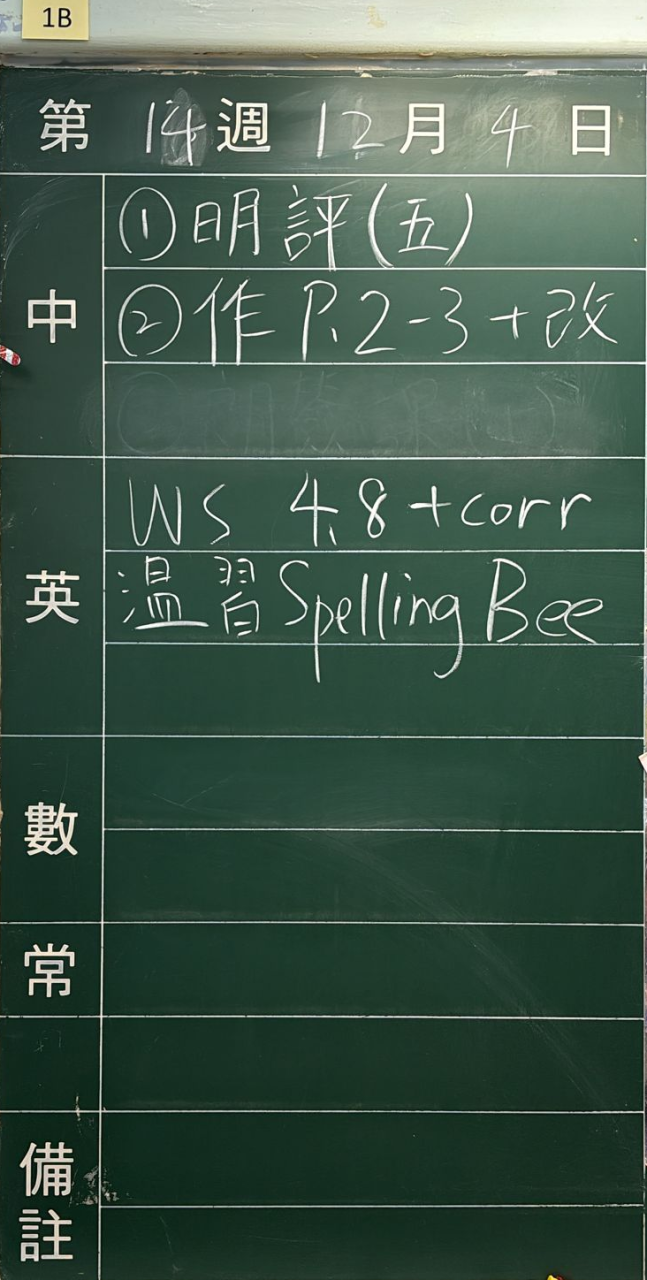 1B
第 14 週 12 月 4 日
中
①明評(五)
②作 P.2-3+改
英
WS 4.8+corr
溫習Spelling Bee
數
常
備註